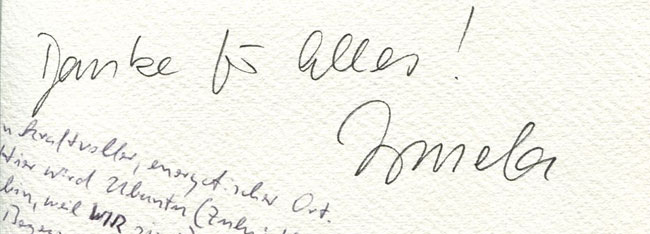 Danke für Alles!
Irmela
kraftvoller, energetischer Ort.
Hier wird Ubuntu (Zulu:
bin, weil WIR